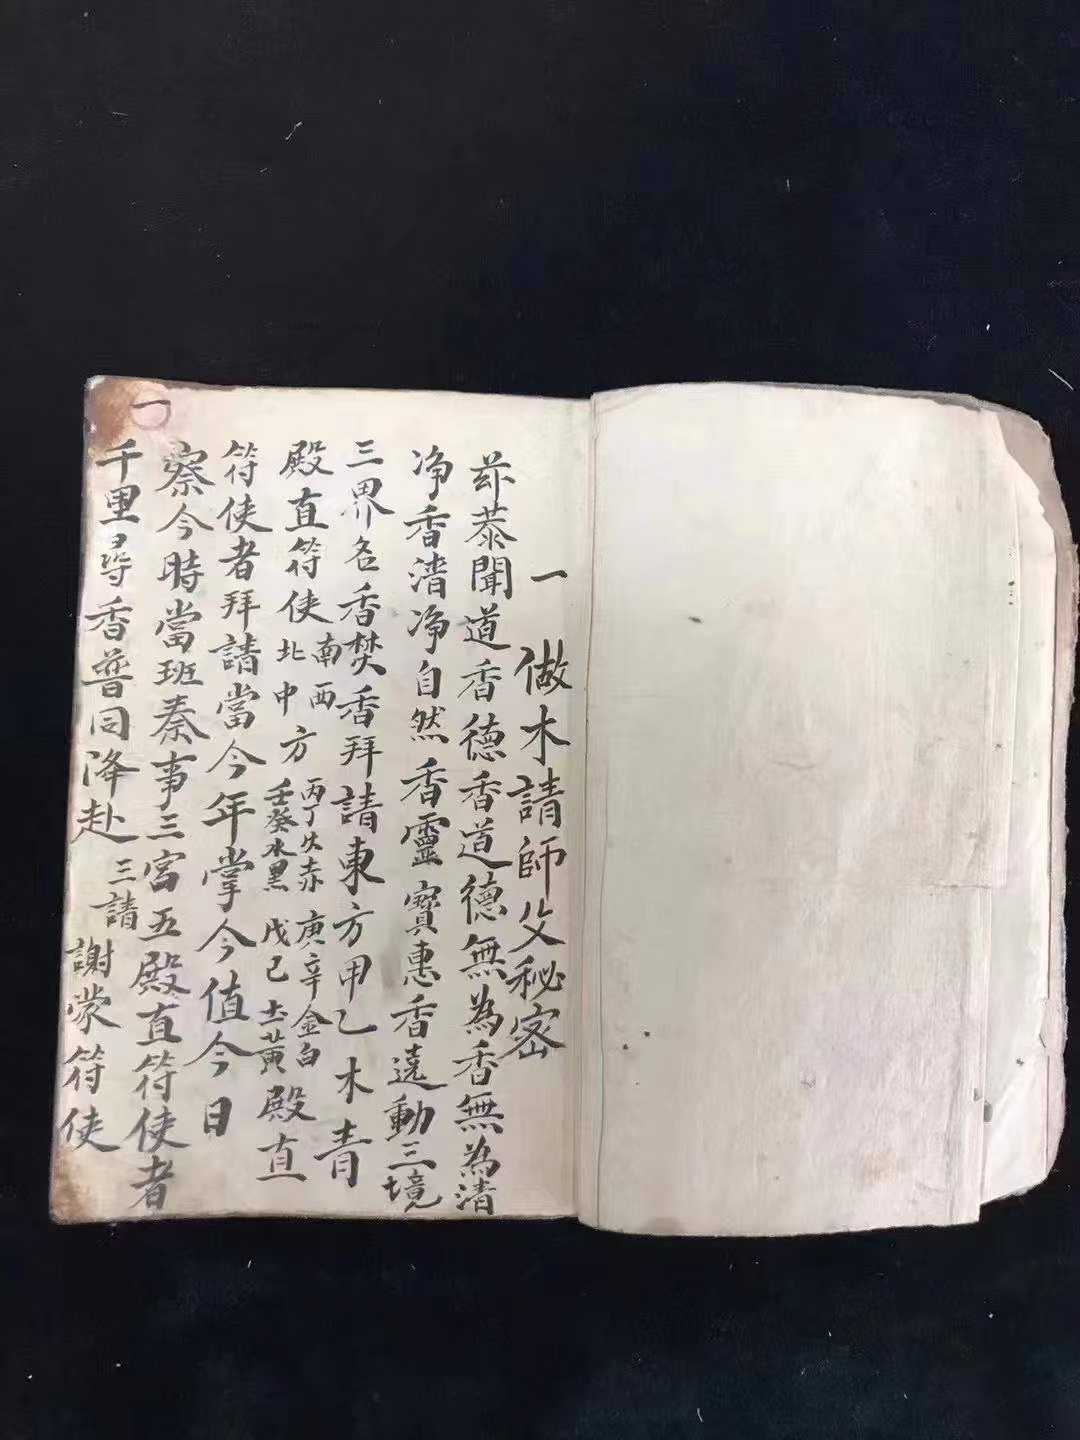 一　做木請師父秘密
茲恭聞道香德香道德無為香無為清
净香清净自然香靈寶惠香遶動三境
三界各香焚香拜請東方甲乙木青
殿直符使南西北中方丙丁火赤庚辛金白壬癸水黑戊己土黃殿直
符使者拜請當今年掌今值今日
察今時當班奏事三宮五殿直符使者
千里尋香普同降赴三請謝蒙符使
一